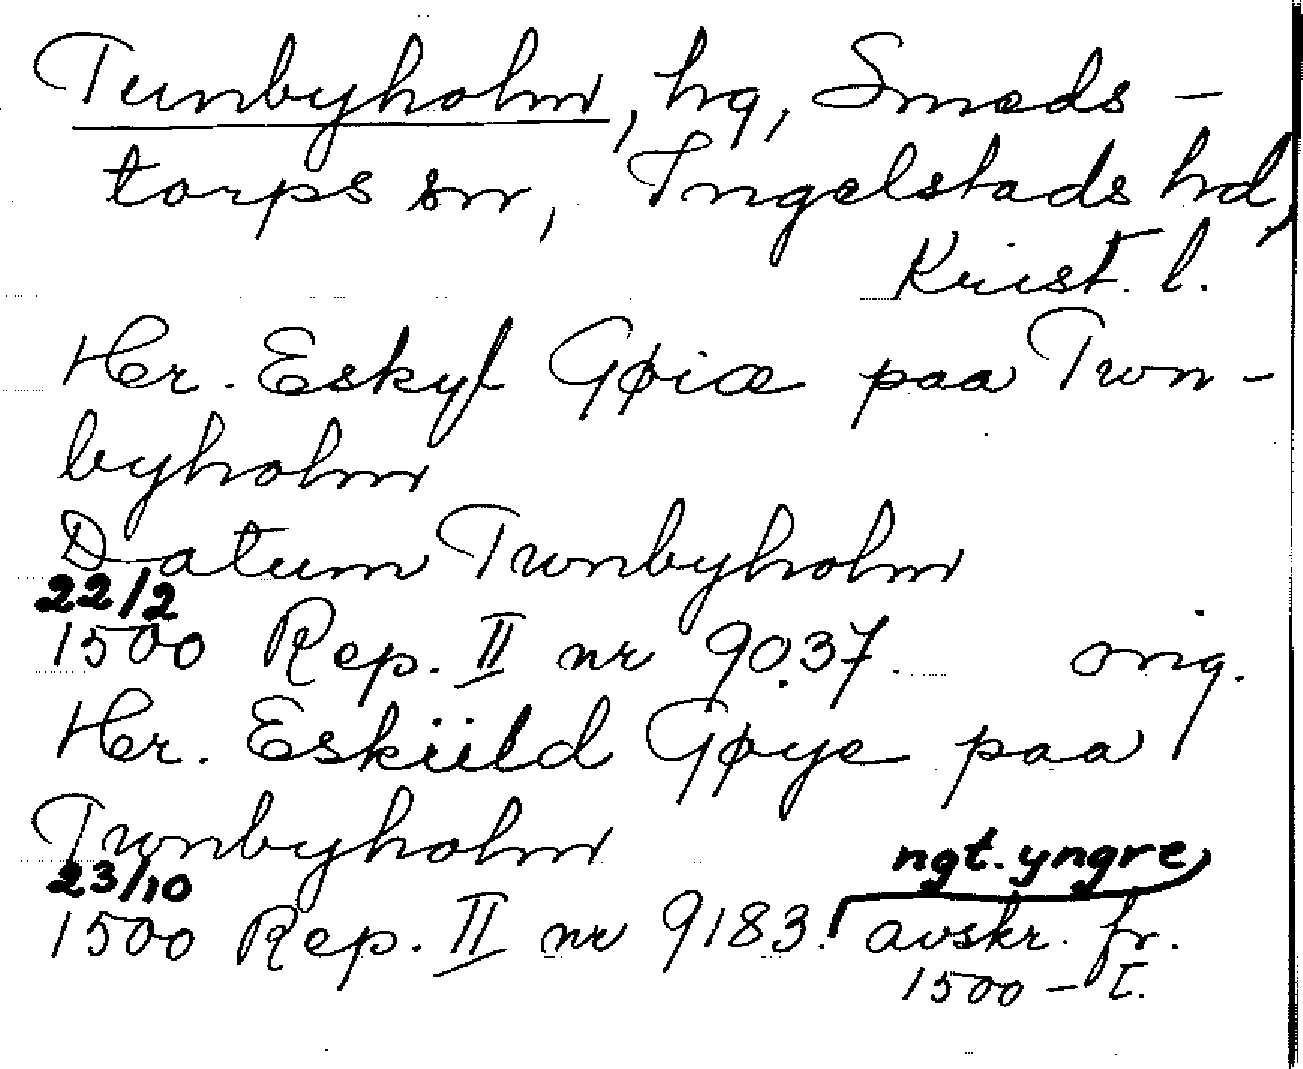 Tunbyholm, hg, Smeds-
torps sn, Ingelstads hd,
Krist. l.
Her. Eskyl Gøiæ paa Twn-
byholm
Datum Twnbyholm
22/2
1500 Rep. II nr 9037. orig.
Her. Eskiild Gøye paa
Twnbyholm
23/10 ngt. yngre
1500 Rep. II nr 9183. avskr. fr.
1500-t.